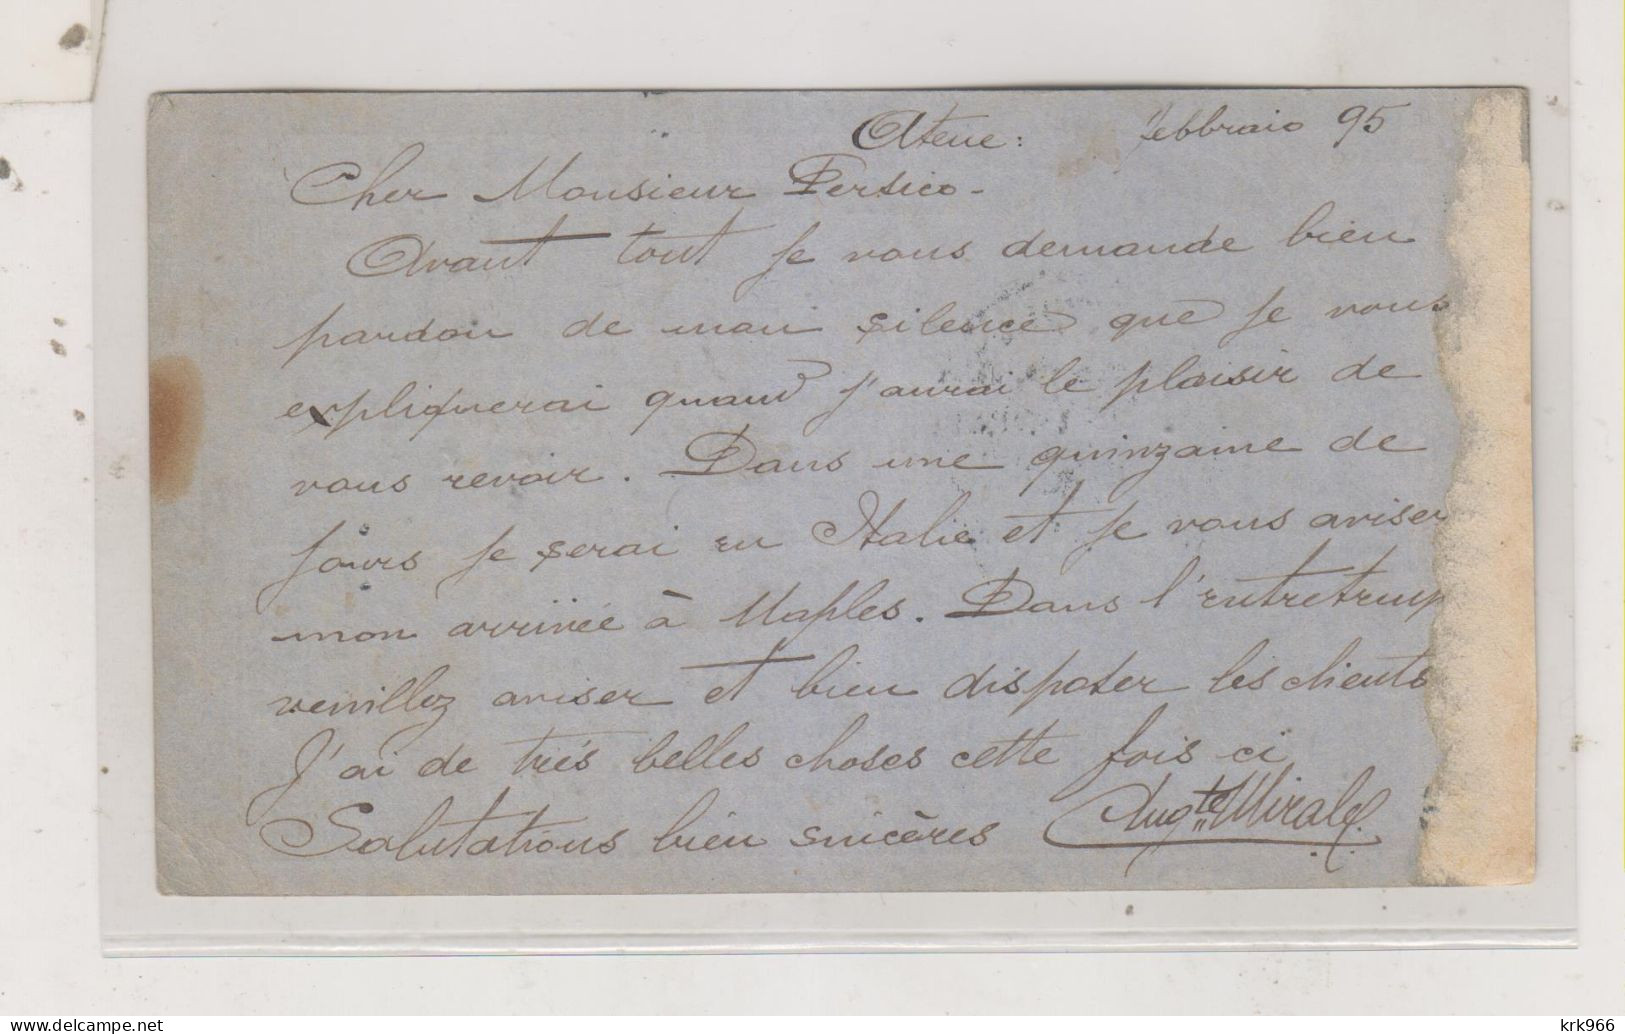 Atene: febbraio 95
Cher Monsieur Persico -
Avant tout je vous demande bien
pardon de mon silence que je vous
expliquerai quand j'aurai le plaisir de
vous revoir. Dans une quinzaine de
jours je serai en Italie et je vous aviser
mon arrivée à Naples. Dans l'entretemp
veuillez aviser et bien disposer les clients
J'ai de très belles choses cette fois ci
Salutations bien sincères Aug.te
krk966